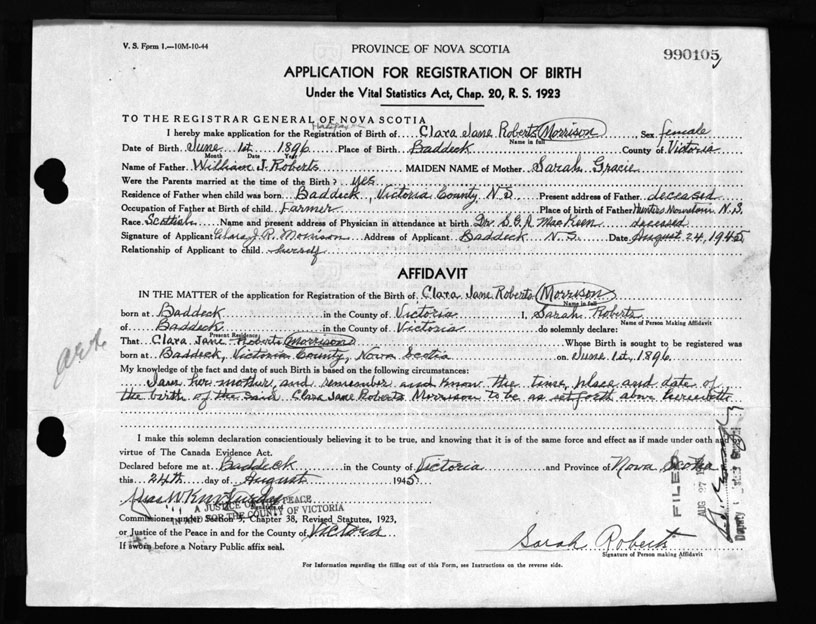 V. S. Form 1.—10M-10-44
PROVINCE OF NOVA SCOTIA
990105
APPLICATION FOR REGISTRATION OF BIRTH
Under the Vital Statistics Act, Chap. 20, R. S. 1923
TO THE REGISTRAR GENERAL OF NOVA SCOTIA
I hereby make application for the Registration of Birth of Clara Jane Roberts Morrison, Sex female
Name in full
Date of Birth June 1st 1896 Place of Birth Baddeck County of Victoria
Month Date Year
Name of Father William J. Roberts MAIDEN NAME of Mother Sarah Gracie
Were the Parents married at the time of the Birth? yes
Residence of Father when child was born Baddeck, Victoria County N.S. Present address of Father deceased
Occupation of Father at Birth of child Farmer Place of birth of Father Hunters Mountain N.S.
Race Scotish Name and present address of Physician in attendance at birth Dr. deceased
Signature of Applicant Clara J. R. Morrison Address of Applicant Baddeck N.S. Date August 24, 1945
Relationship of Applicant to child herself
AFFIDAVIT
IN THE MATTER of the application for Registration of the Birth of Clara Jane Roberts Morrison
Name in full
born at Baddeck in the County of Victoria I, Sarah Roberts
Name of Person Making Affidavit
of Baddeck in the County of Victoria do solemnly declare:
Present Residence
That Clara Jane Roberts Morrison Whose Birth is sought to be registered was
born at Baddeck, Victoria County, Nova Scotia on June 1st, 1896
My knowledge of the fact and date of such Birth is based on the following circumstances:
I am her mother, and remember and know the time, place and date of
the birth of the said Clara Jane Roberts Morrison to be as set forth above herewith
I make this solemn declaration conscientiously believing it to be true, and knowing that it is of the same force and effect as if made under oath and
virtue of The Canada Evidence Act.
Declared before me at Baddeck in the County of Victoria and Province of Nova Scotia
this 24th day of August 1945
A JUSTICE OF THE PEACE
IN AND FOR THE COUNTY OF VICTORIA
Commissioner under Section 9, Chapter 38, Revised Statutes, 1923,
or Justice of the Peace in and for the County of Victoria
If sworn before a Notary Public affix seal.
Sarah Roberts
Signature of Person making Affidavit
For Information regarding the filling out of this Form, see Instructions on the reverse side.
FILED
AUG 27
Deputy